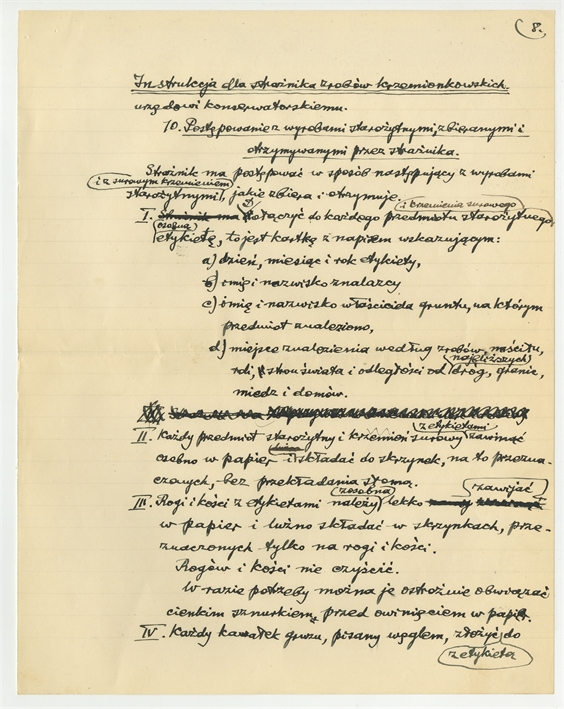 8.
Instrukcja dla strażnika zrobów krzemionkowskich.
urzędowi konserwatorskiemu.
10. Postępowanie z wyrobami starożytnymi, zbieranymi i
otrzymywanymi przez strażnika.
Strażnik ma postępować w sposób następujący z wyrobami
i z surowym krzemieniem
starożytnymi, jakie zbiera i otrzymuje.
i krzemienia surowego
I. Strażnik ma Dołączyć do każdego przedmiotu starożytnego
osobną
etykietę, to jest kartkę z napisem wskazującym:
a) dzień, miesiąc i rok etykiety,
b) imię i nazwisko znalazcy
c) imię i nazwisko właściciela gruntu, na którym
przedmiot znaleziono,
d) miejsce znalezienia według zrobów, naścitu,
najbliższych
roli, stron świata i odległości od dróg, granic,
miedz i domów.
z etykietami
II. Każdy przedmiot starożytny i krzemień surowy zawinąć
osobno w papier i składać do skrzynek, na to przezna-
czonych, bez przekładania słomą.
zosobna zawijać
III. Rogi i kości z etykietami należy lekko
w papier i luźno składać w skrzynkach, prze-
znaczonych tylko na rogi i kości.
Rogów i kości nie czyścić.
W razie potrzeby można je ostrożnie obwiązać
cienkim sznurkiem, przed owinięciem w papier.
IV. Każdy kawałek gruzu, pisany węglem, złożyć do
z etykietą